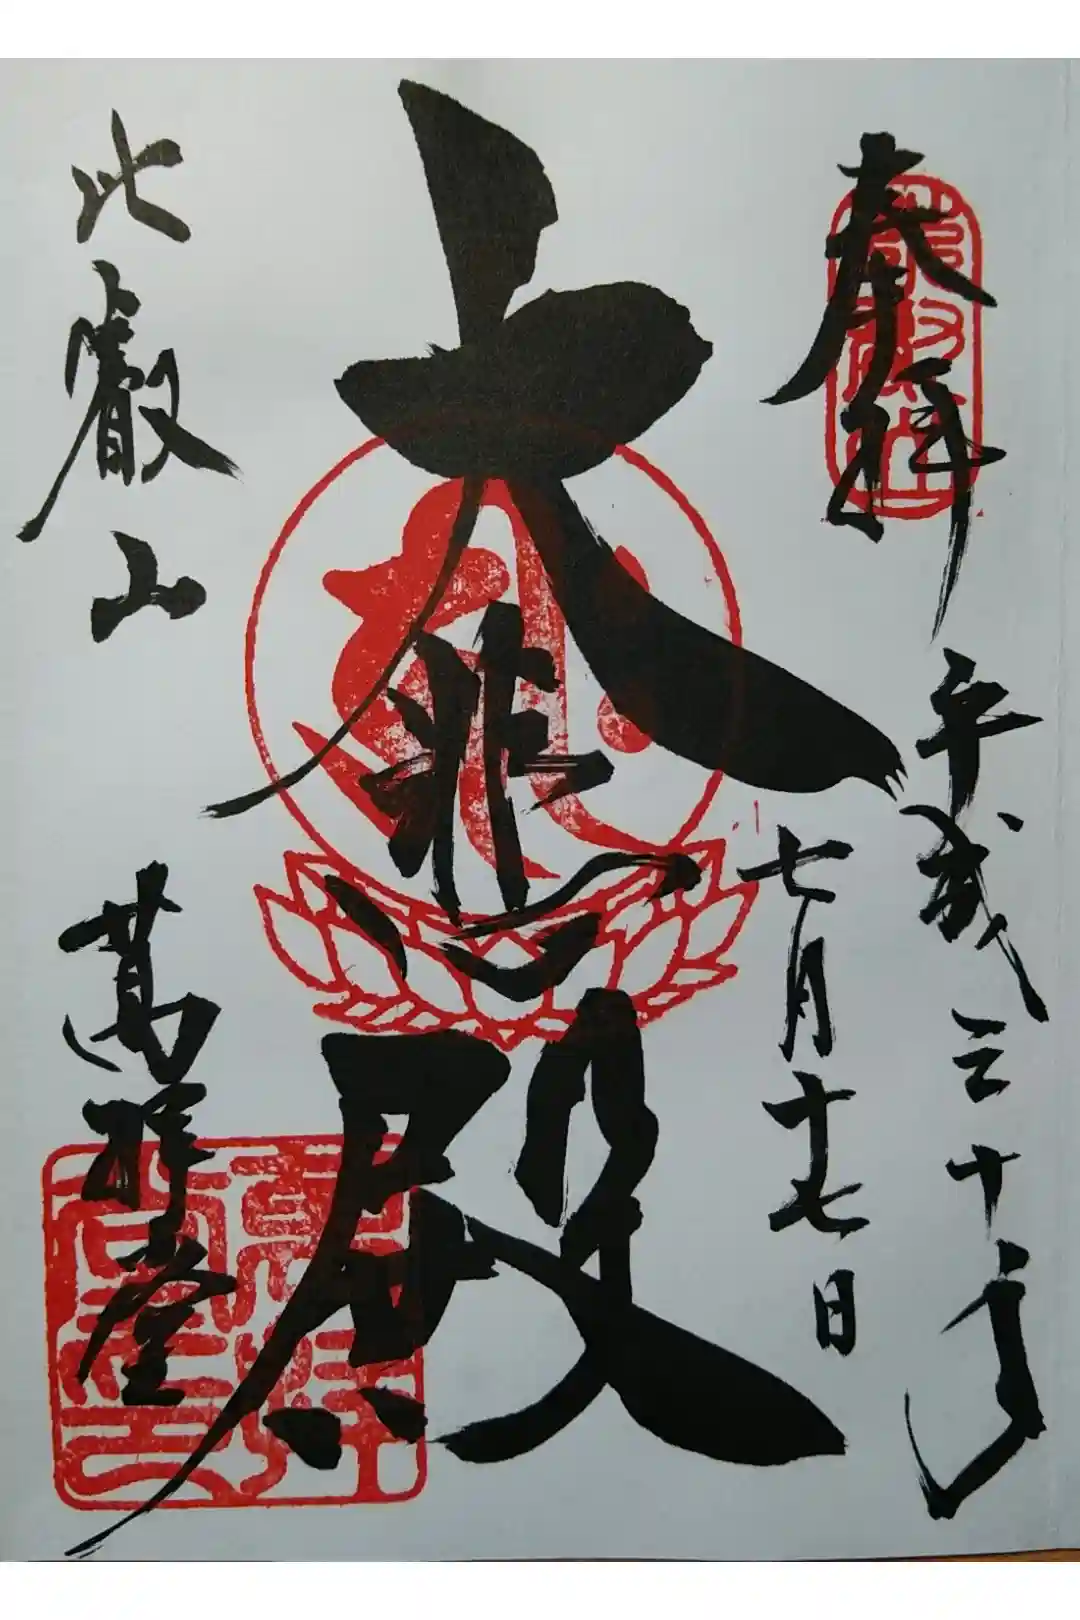 奉拝
平成三十年
七月十七日
大悲殿
比叡山
萬拝堂